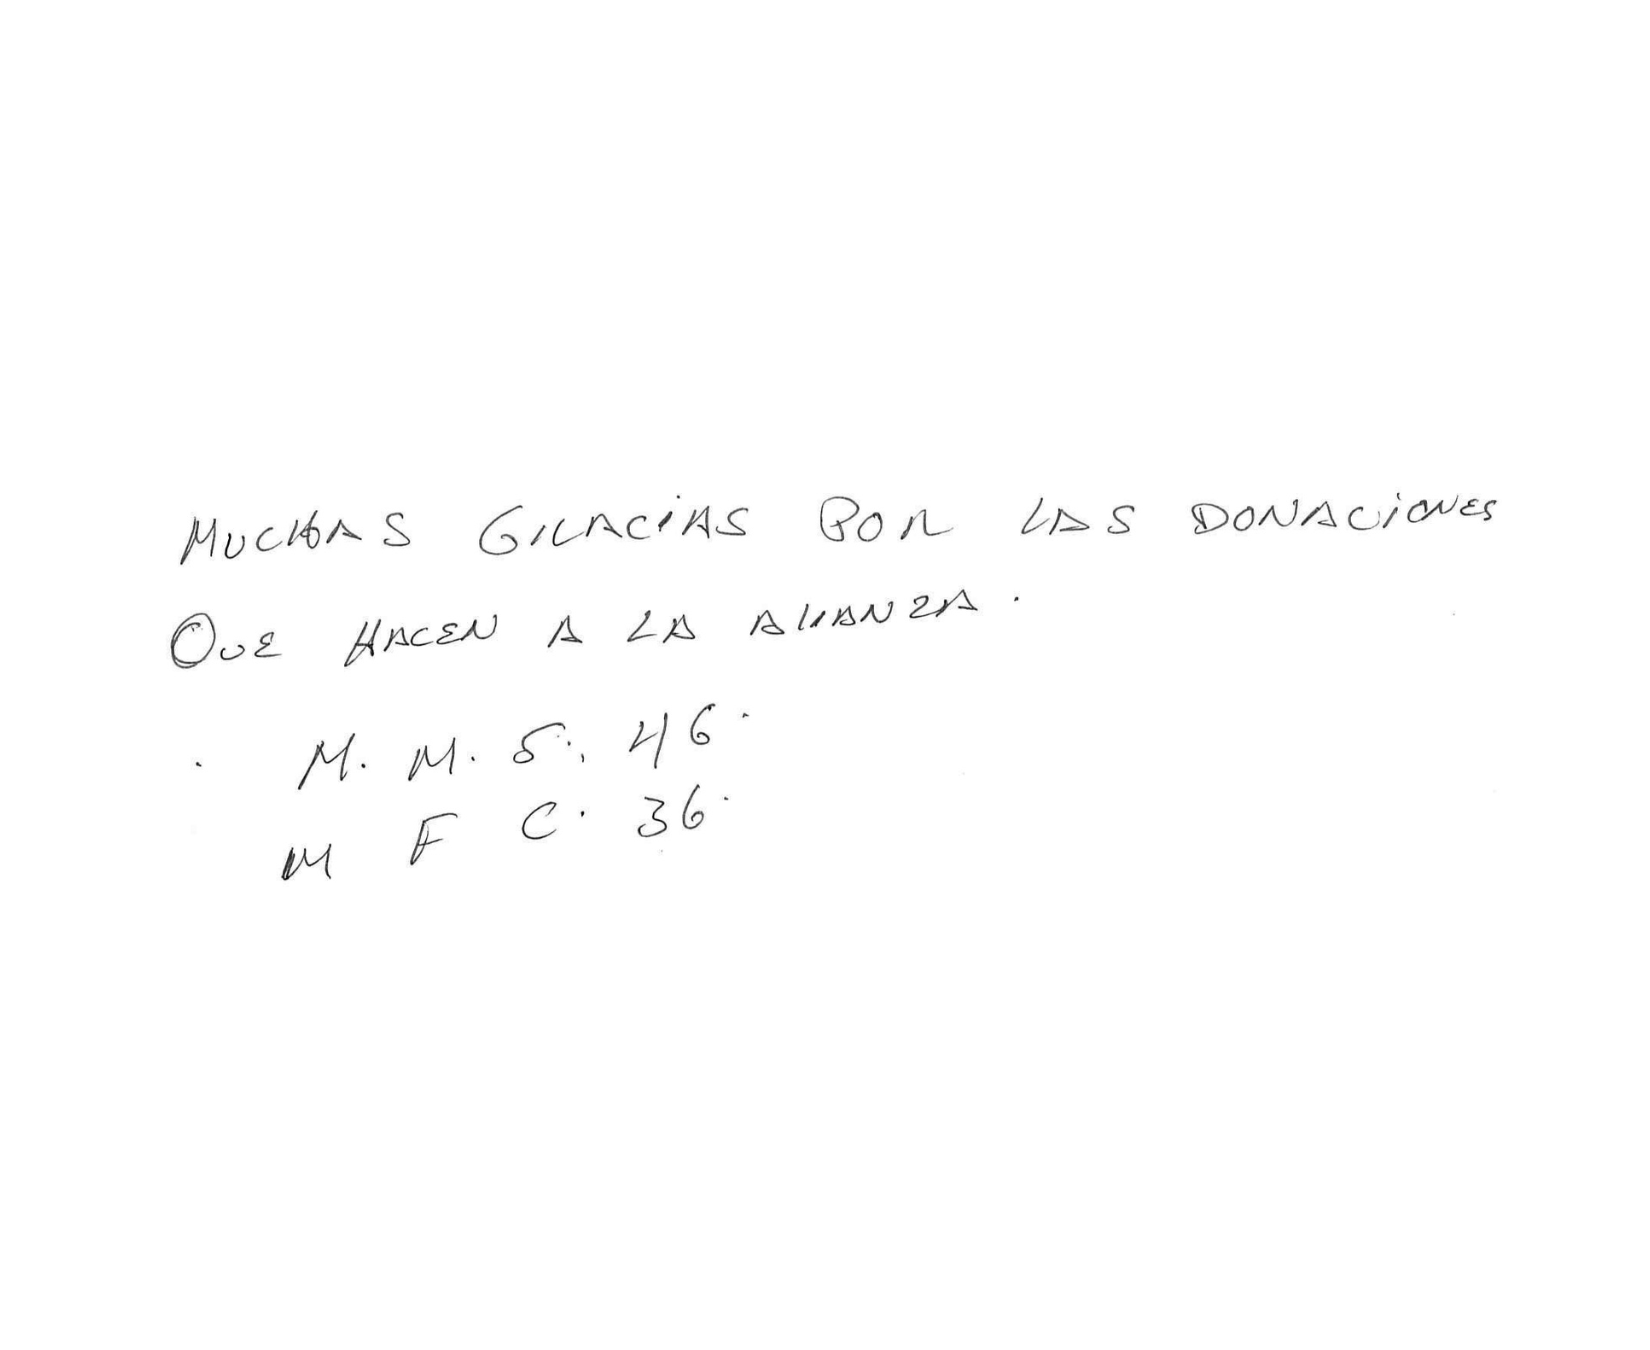 MUCHAS GRACIAS POR LAS DONACIONES
QUE HACEN A LA ALIANZA.
. M. M. S., 46.
M F C. 36.